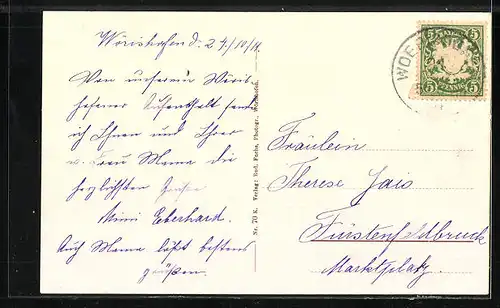 Wörishofen d. 24/10/11.
Von unserem Wöris-
hofener Aufenthalt sende
ich Ihnen und Ihrer
w. Frau Mama die
herzlichsten Grüße
Mimi Eberhard.
Auch Mama läßt bestens
grüßen.
Nr. 70 K. Verlag: Red. Fuchs, Photogr., Wörishofen.
WOE
5 5
PFENNIG
5 5
Fräulein
Therese Jais
Fürstenfeldbruck
Marktplatz